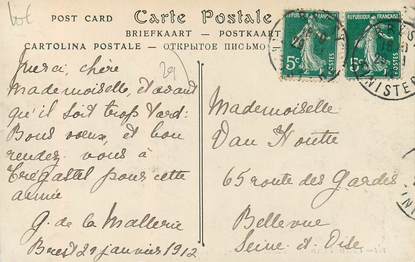 POST CARD Carte Postale POSTKARTE
BRIEFKAART — POSTKAART
CARTOLINA POSTALE — ОТКРЫТОЕ ПИСЬМО
29
Merci, chère
Mademoiselle, et avant
qu'il soit trop tard:
Bons vœux, et bon
rendez vous à
Trégastel pour cette
année
G. de la Mallerie
Brest 29 janvier 1912
REPUBLIQUE FRANÇAISE
5c
POSTES
REPUBLIQUE FRANÇAISE
5c
POSTES
Mademoiselle
Van Houtte
65 route des Gardes
Bellevue
Seine-et-Oise